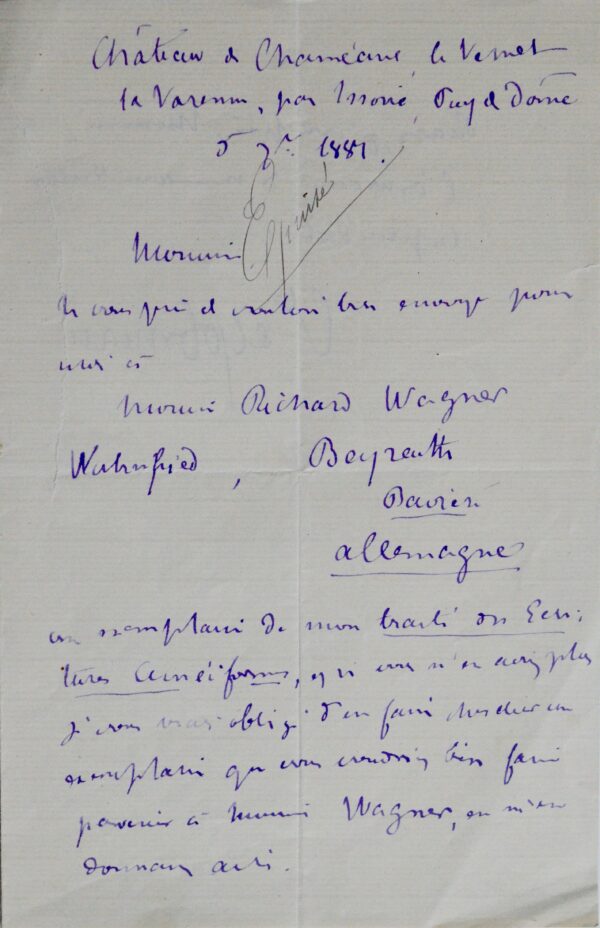 Château de Chaméane, le Vernet
la Varenne, par Issoire, Puy de Dôme
5 7re 1881.
Epuisé
Monsieur
Je vous prie de vouloir bien envoyer pour
moi à
Monsieur Richard Wagner
Wahnfried, Bayreuth
Bavière
Allemagne
un exemplaire de mon traité des Ecri-
tures Cunéiformes, et si vous n'en aviez plus
je vous serais obligé d'en faire chercher un
exemplaire que vous voudrez bien faire
parvenir à Monsieur Wagner, en m'en
donnant avis.